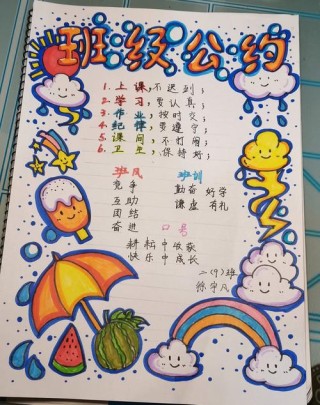 班级公约
1. 上课,不迟到;
2. 学习,要认真;
3. 作业,按时交;
4. 纪律,要遵守;
5. 课间,不打闹;
6. 卫生,保持好;
班风 班训
竞争 勤奋 好学
互助 谦虚 有礼
团结
奋进 口号
耕耘中收获
快乐中成长
二(4)班